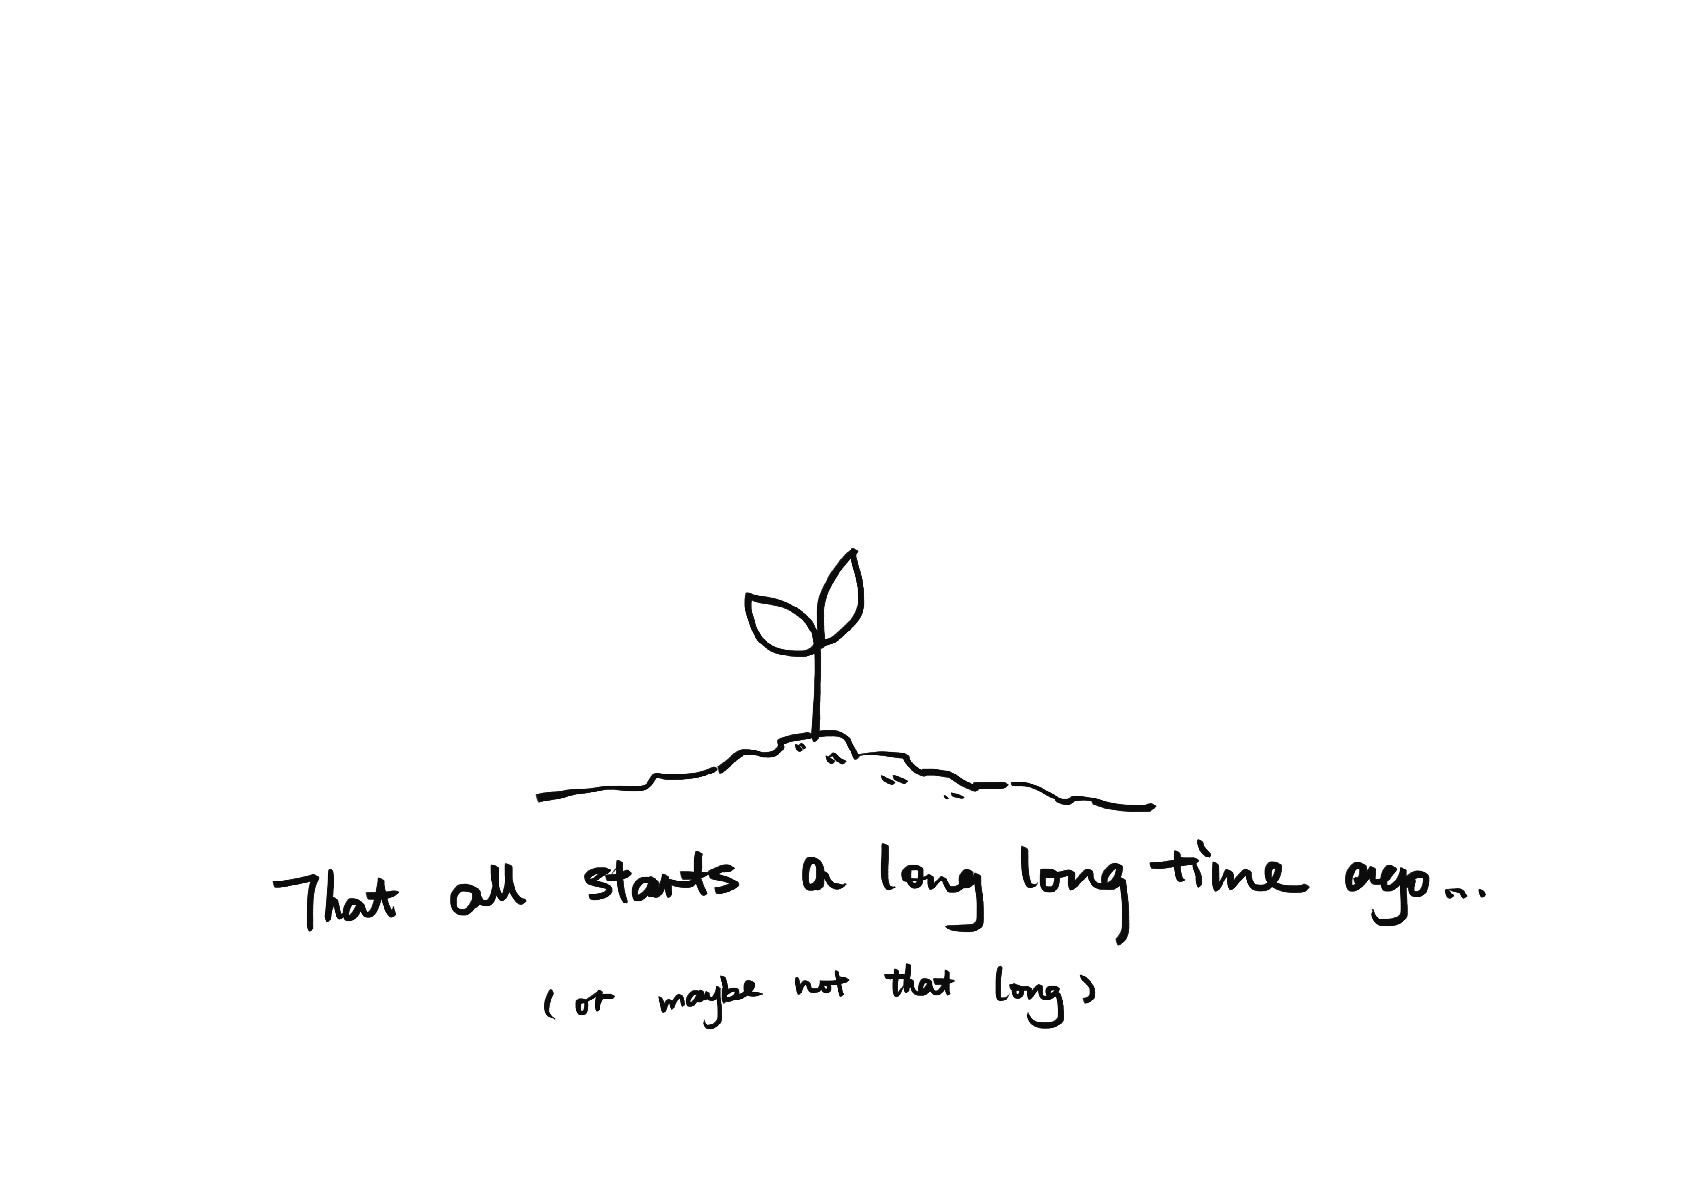 That all starts a long long time ago...
(or maybe not that long)